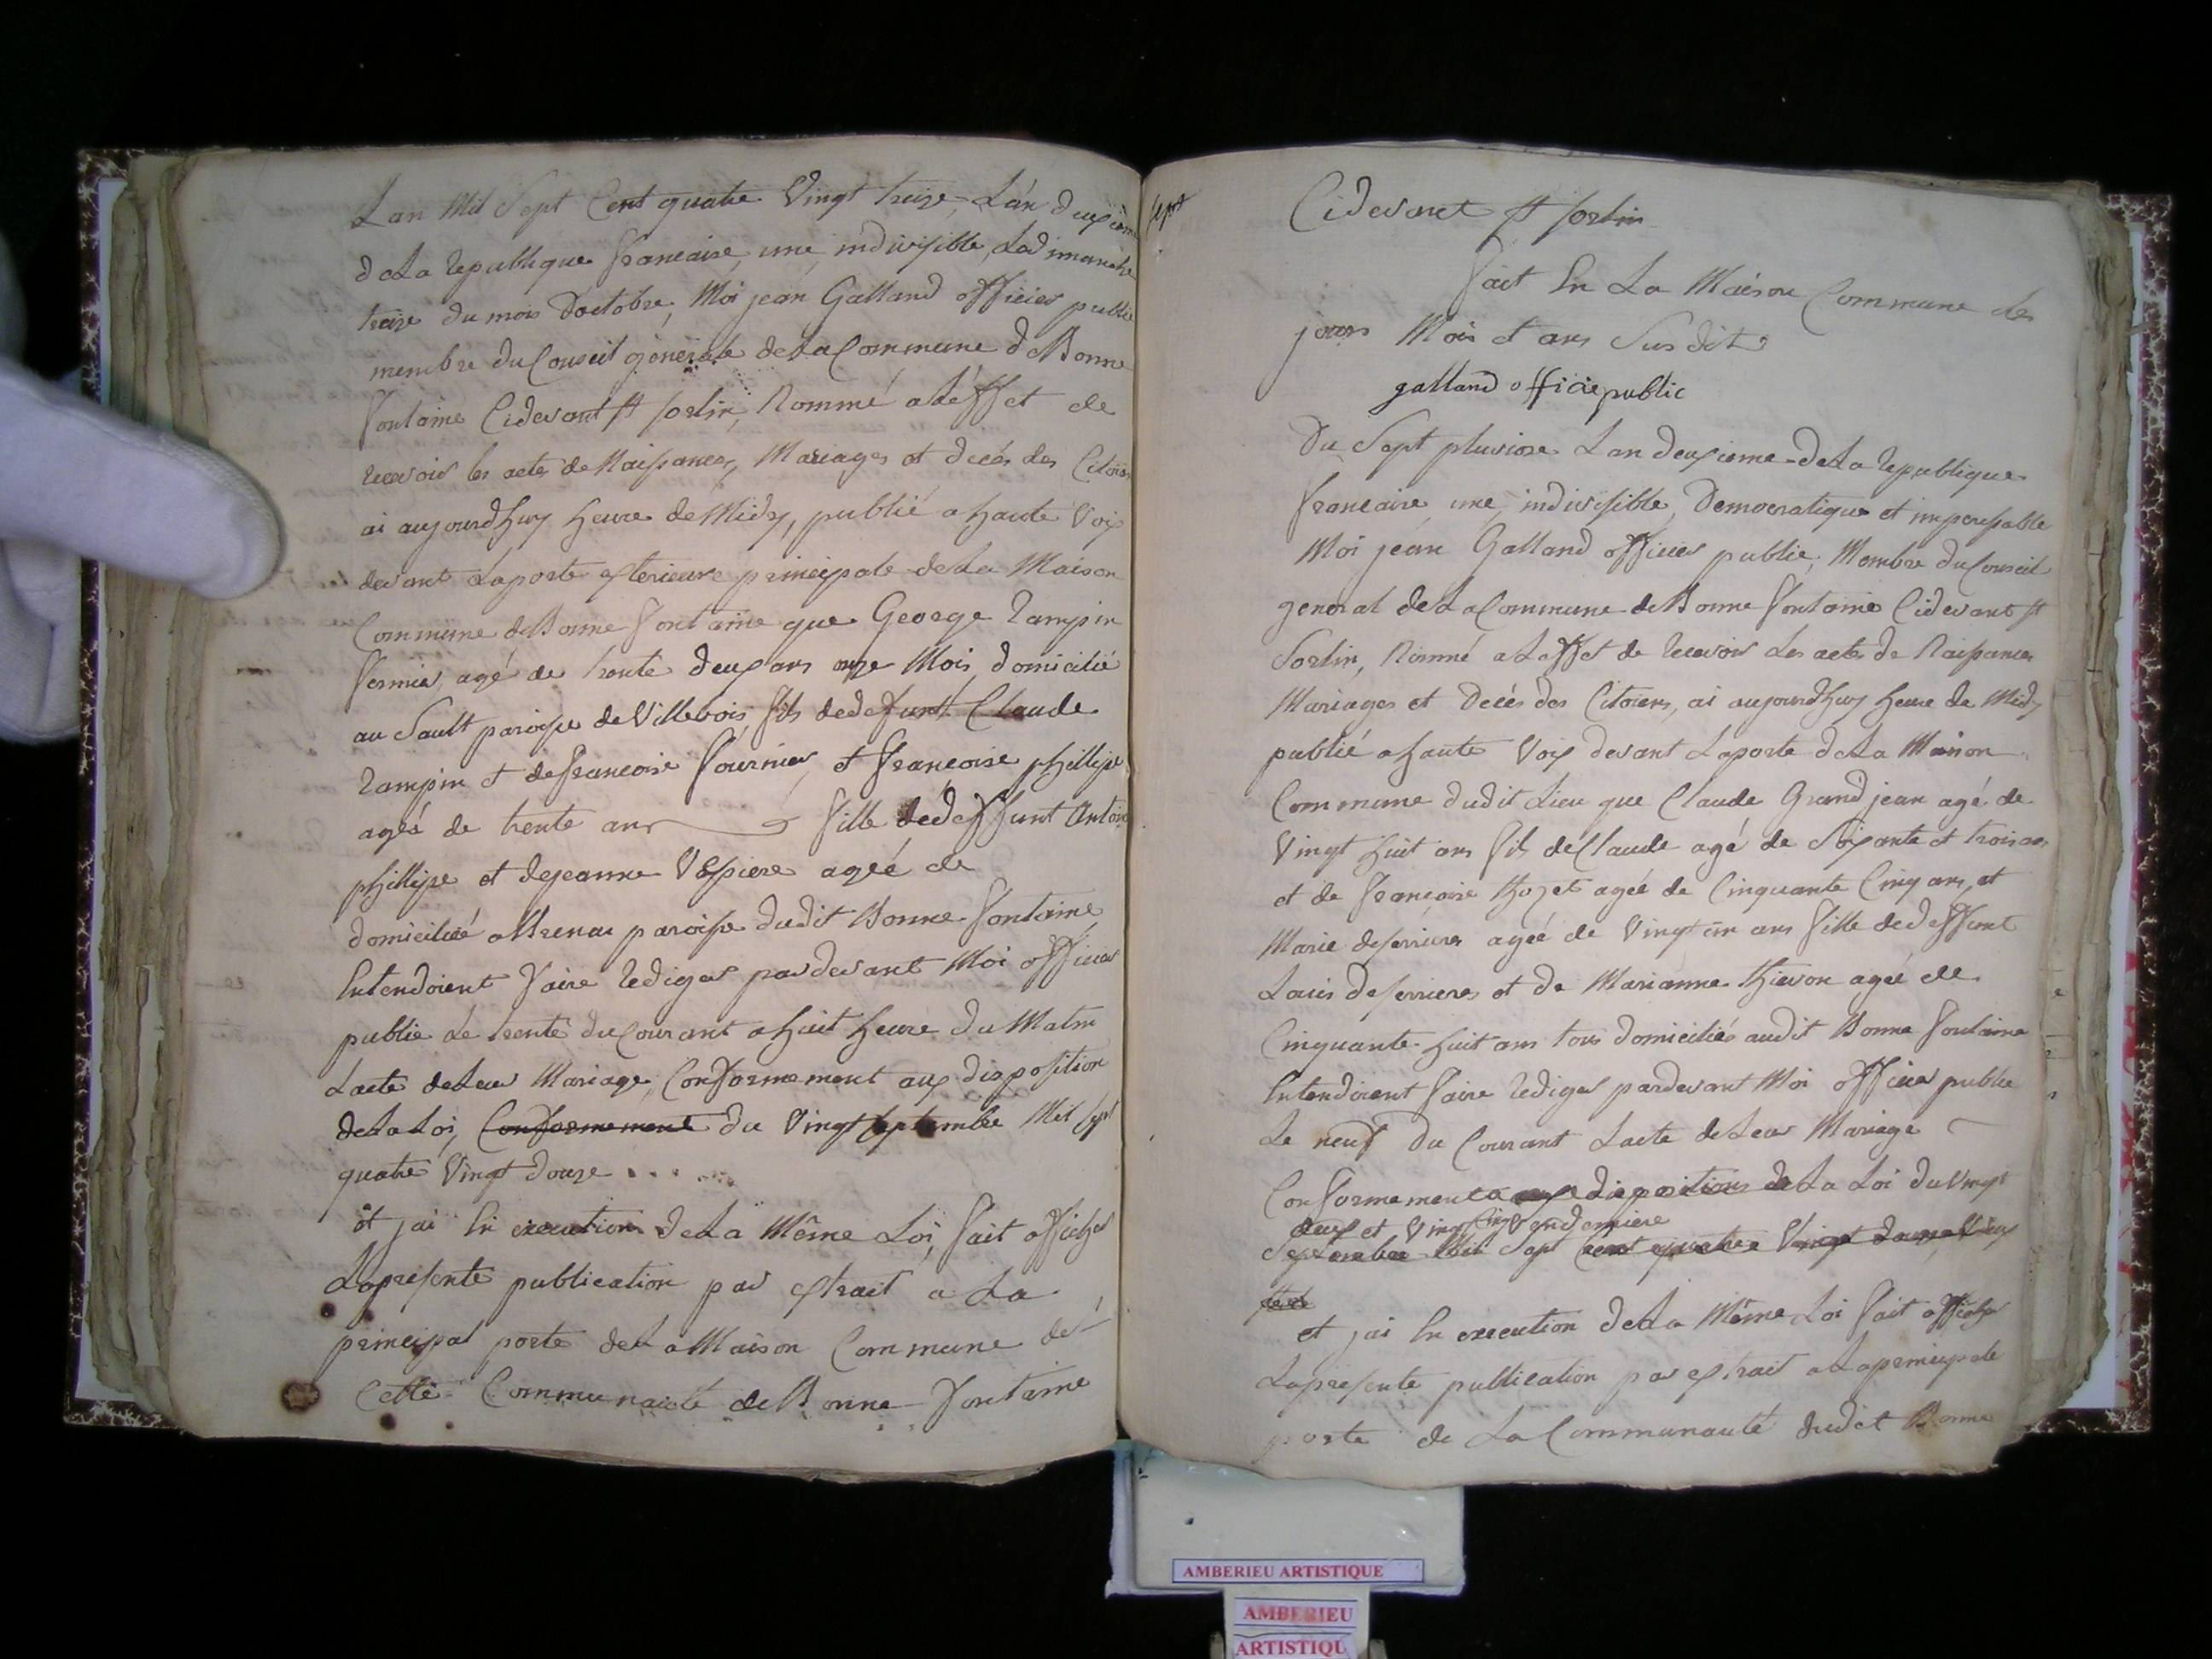 Lan Mil Sept Cent quatre Vingt treize, L'an deuxième
deLa republique francaise, une, indivisible, Ledimanche
treize du mois Doctobre, Moi jean Galland officier public
membre du Conseil générale deLaCommune deBonne
fontaine Cidevant St Sorlin, Nommé aLéffet de
recevoir les actes de Naissances, Mariages et decés des Citoiens
ai aujourdhuy heure deMidy, publié a haute Voix
devant Laporte exterieure principale deLa Maison
Commune deBonne fontaine que George rampin
fermier, agé de trente deux ans onze Mois, domicilié
au Sault paroisse deVillebois, fils dedefunt Claude
rampin et defrancoise fournier, et francoise phillipe
ageé de trente ans fille dedeffunt Antoine
phillipe et dejeanne agéé de
domiciliéé paroisse dudit Bonne fontaine,
Entendoient faire rediger pardevant Moi officier
public Le trente duCourant a huit heure du Matin
Lacte deLeur Mariage, Conformement aux disposition
deLaLoi, Conformement du Vingt septembre Mil Sept
quatre Vingt douze . . .
et jai En execution deLa Même Loi, fait afficher
Lapresente publication par extrait a La
principal porte deLaMaison Commune de
Cette Communauté deBonne fontaine
Sept
Cidevant St Sorlin
fait En La Maison Commune les
jours Mois et ans Susdit
galland officiepublic
Du Sept pluviose Lan deuxieme deLa republique
francaise une, indivisible, Democratique et imperissable
Moi jean Galland officier public, Membre duConseil
general deLaCommune deBonne fontaine Cidevant St
Sorlin, Nommé aLeffet de recevoir Les actes de Naissances
Mariages et Decés des Citoiens, ai aujourdhuy heure de Midy
publié ahaute Voix devant Laporte deLa Maison
Commune dudit Lieu que Claude Grandjean agé de
Vingt huit ans fils deClaude agé de Soixante et trois ans
et de francoise agéé de Cinquante Cinq ans, et
Marie deferrieres agéé de Vingt un ans fille dedeffunt
Louis deferrieres et de Marianne agéé de
Cinquante huit ans tous domiciliés audit Bonne fontaine
Entendoient faire rediger pardevant Moi officier public
Le neuf du Courant Lacte deLeur Mariage
Conformement aux dispositions deLa Loi du Vingt
deux et Vingt Cinq Vendemiere
Septembre Mil Sept Cent quatre Vingt douze
et jai En execution deLa Même Loi fait afficher
Lapresente publication par extrait aLaprincipale
porte de LaCommunauté dudit Bonne
AMBERIEU ARTISTIQUE
AMBERIEU
ARTISTIQU